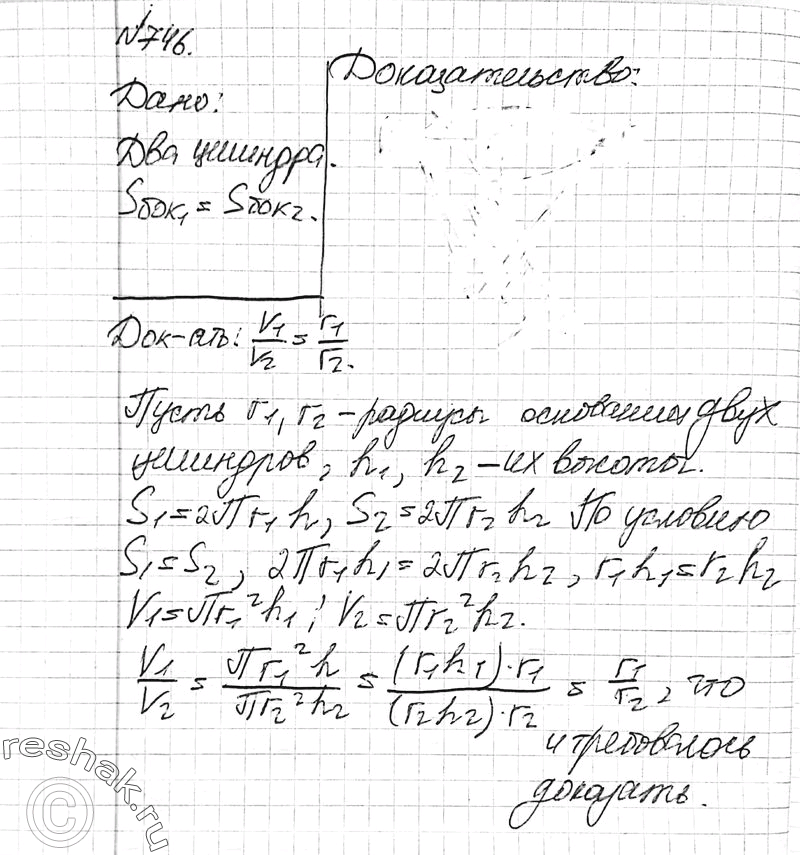 №746.
Дано:
Два цилиндра.
Sбок₁ = Sбок₂.
Доказательство:
Док-ать: V₁/V₂ = r₁/r₂.
Пусть r₁, r₂ - радиусы оснований двух
цилиндров, h₁, h₂ - их высоты.
S₁ = 2πr₁h, S₂ = 2πr₂h₂ По условию
S₁ = S₂, 2πr₁h₁ = 2πr₂h₂, r₁h₁ = r₂h₂
V₁ = πr₁²h₁; V₂ = πr₂²h₂.
V₁/V₂ = πr₁²h/πr₂²h₂ = (r₁h₁)·r₁/(r₂h₂)·r₂ = r₁/r₂, что
и требовалось
доказать.
reshak.ru
©